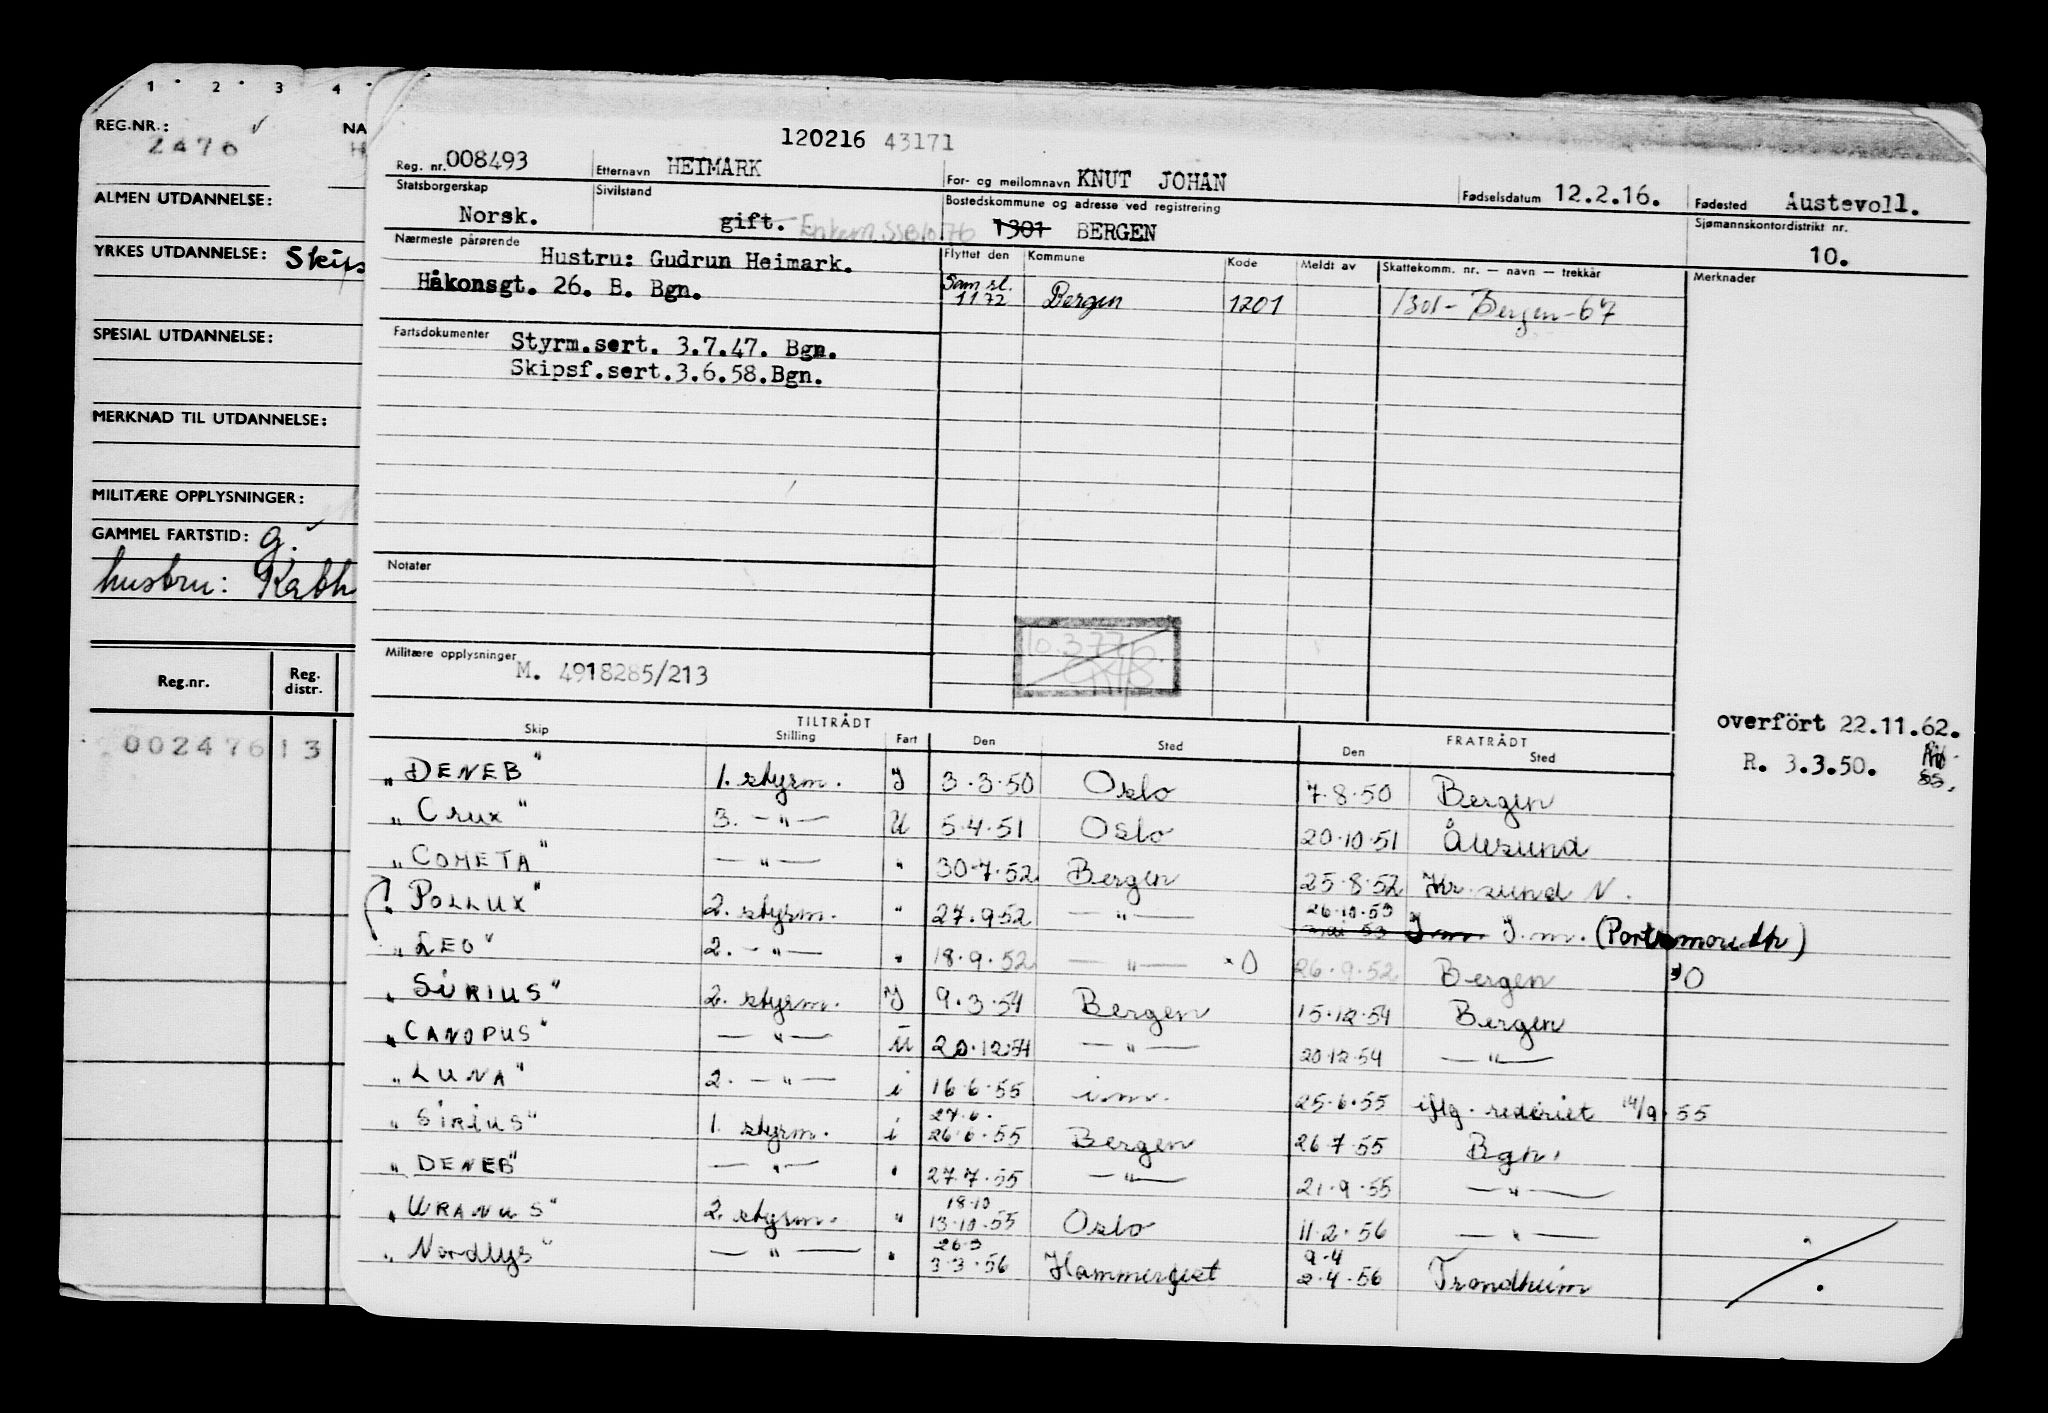 1 2 3 4
REG.NR.: 2476 NA
ALMEN UTDANNELSE:
YRKES UTDANNELSE: Skips
SPESIAL UTDANNELSE:
MERKNAD TIL UTDANNELSE:
MILITÆRE OPPLYSNINGER:
GAMMEL FARTSTID: g.
hustru: Kath
Reg.nr. Reg. distr.
002476 13
120216 43171
Reg. nr. 008493 Etternavn HEIMARK For- og mellomnavn KNUT JOHAN Fødselsdatum 12.2.16. Fødested Austevoll.
Statsborgerskap Norsk. Sivilstand gift. Bostedskommune og adresse ved registrering 1301 BERGEN Sjømannskontordistrikt nr. 10.
Nærmeste pårørende Hustru: Gudrun Heimark.
Håkonsgt. 26. B. Bgn.
Flyttet den Kommune Kode Meldt av Skattekomm. nr. — navn — trekkår Merknader
Sam sl. 1172 Bergen 1201 1301 - Bergen - 67
Fartsdokumenter Styrm.sert. 3.7.47. Bgn.
Skipsf.sert.3.6.58.Bgn.
Notater
10.377
Militære opplysninger M. 4918285/213
overfört 22.11.62.
R. 3.3.50.
TILTRÅDT FRATRÅDT
Skip Stilling Fart Den Sted Den Sted
„DENEB" 1. styrm. J 3.3.50 Oslo 7.8.50 Bergen
„Crux" 3. — " — U 5.4.51 Oslo 20.10.51 Ålesund
„COMETA" — " — " 30.7.52 Bergen 25.8.52 Kr.sund N.
„POLLUX" 2. styrm. " 27.9.52 — " — 26.10.53 J.m. (Portsmouth)
„LEO" 2. — " — " 18.9.52 — " — × O 26.9.52 Bergen × O
„SIRIUS" 2. styrm. J 9.3.54 Bergen 15.12.54 Bergen
„CANOPUS" — " — U 20.12.54 — " — 20.12.54 — " —
„LUNA" 2. — " — i 16.6.55 i.m. 25.6.55 iflg. rederiet 14/9.55
„SIRIUS" 1. styrm. i 27.6. 26.6.55 Bergen 26.7.55 Bgn.
„DENEB" — " — " 27.7.55 — " — 21.9.55 — " —
„URANUS" 2. styrm. " 18.10 13.10.55 Oslo 11.2.56 — " —
„Nordlys" — " — " 26.3 3.3.56 Hammerfest 9.4 2.4.56 Trondheim